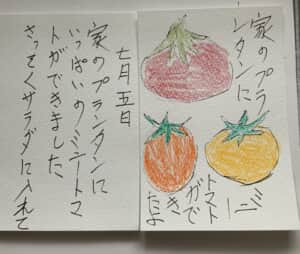 家のプラ
ンタンに
ミニー
トマト
がで
き
たよ
七月五日
家のプランタンに
いっぱいのミニートマ
トができました
さっそくサラダに入れて